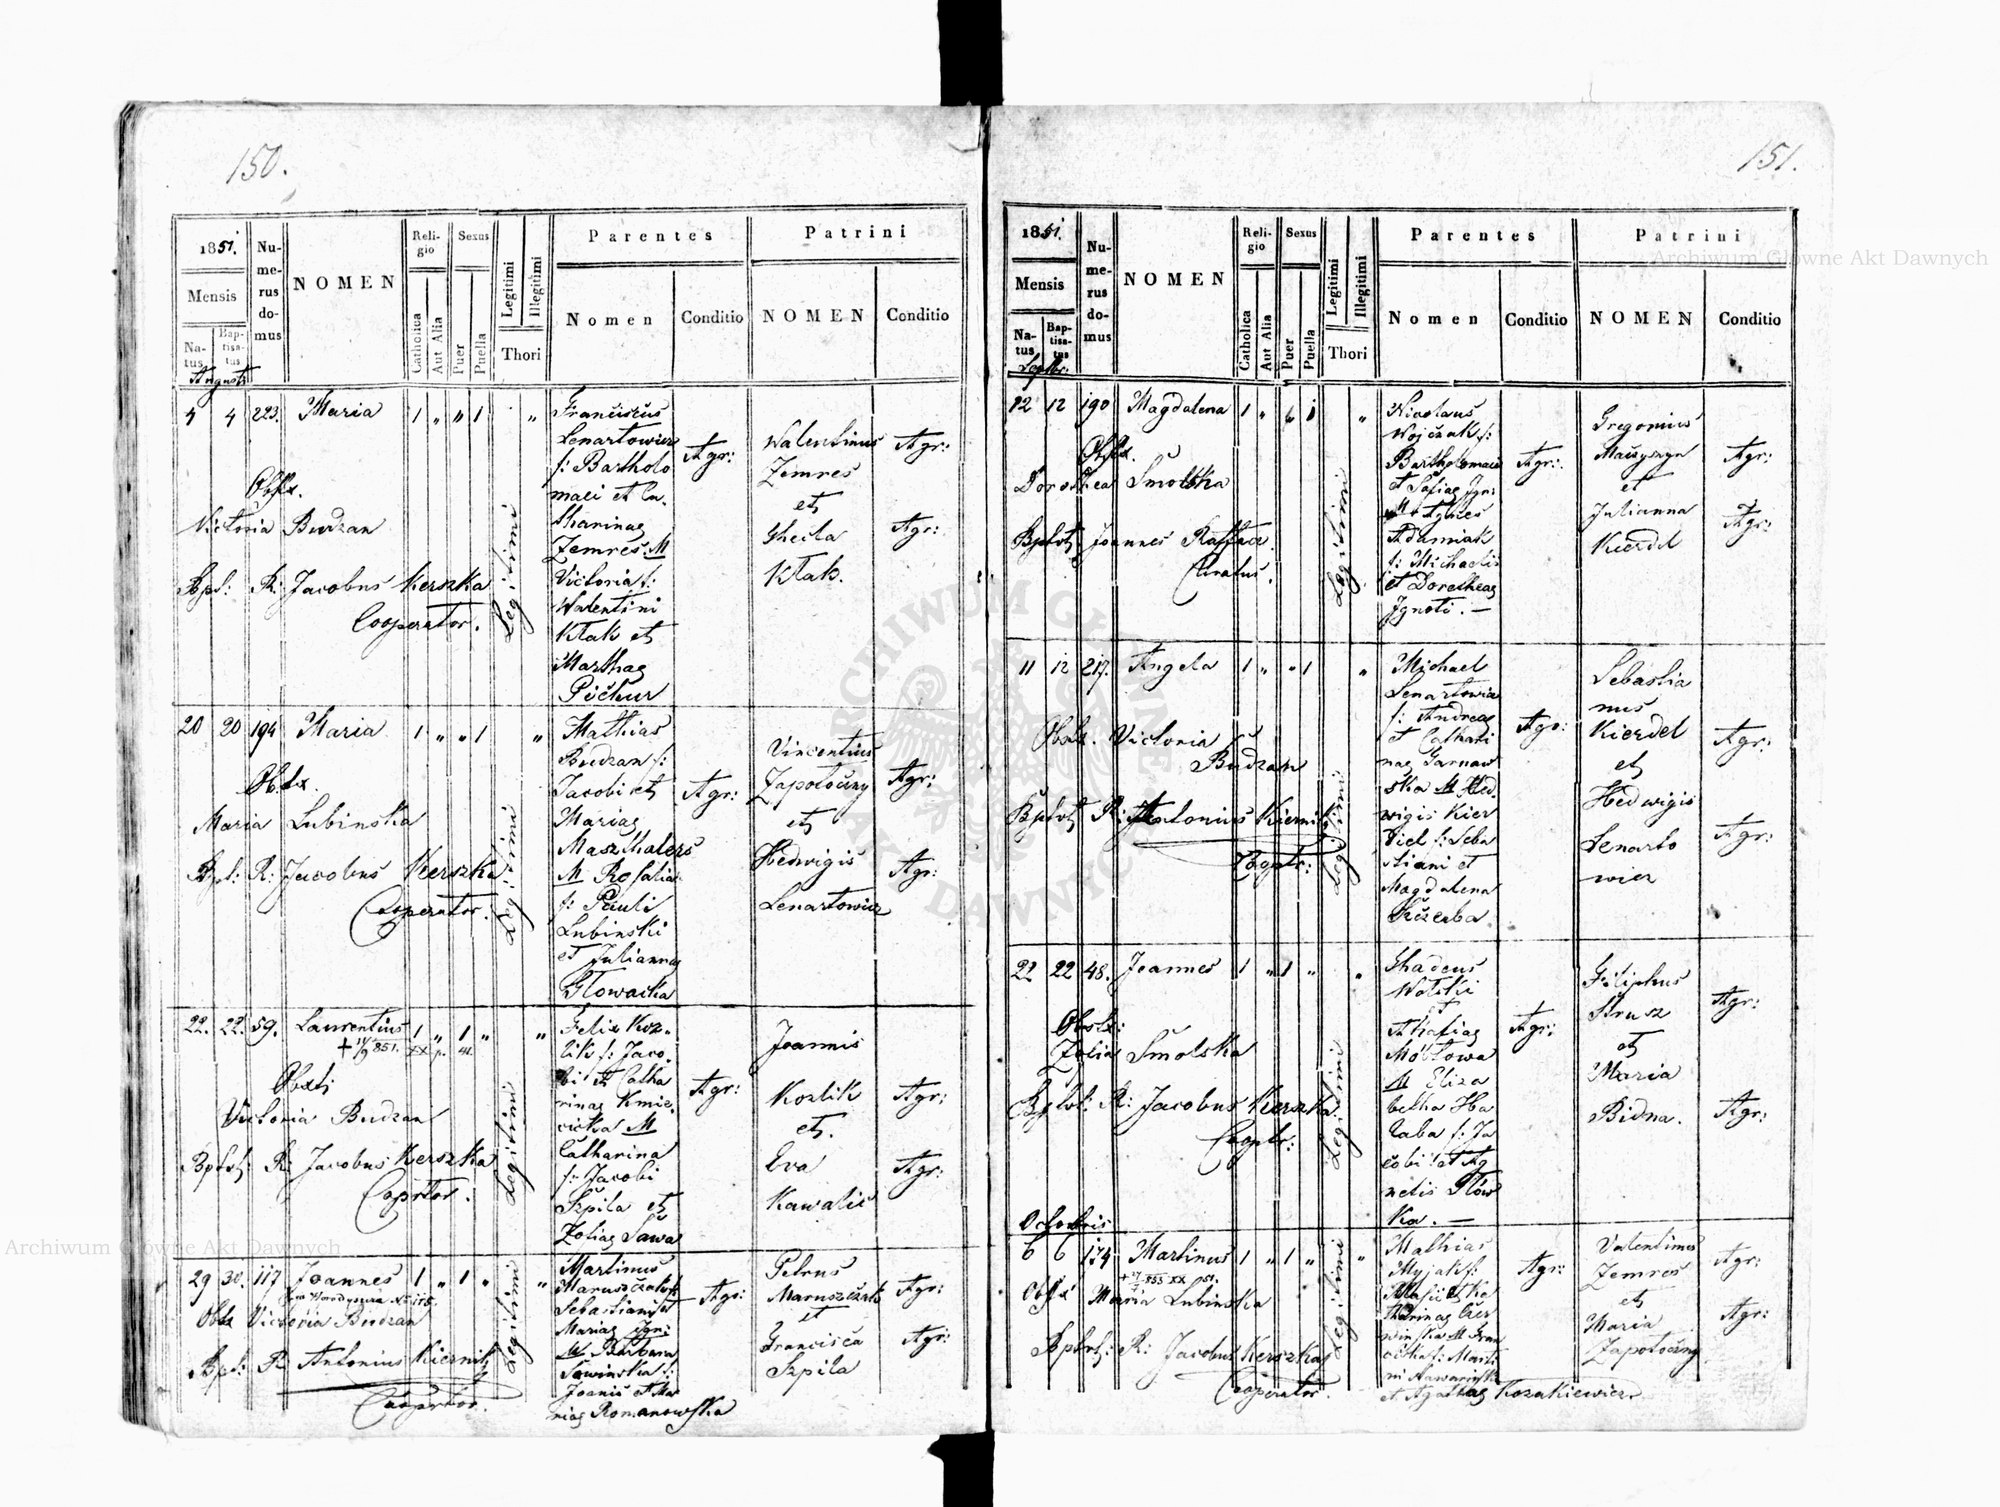 150.
1851.
Mensis
Natus
Baptisatus
Numerus domus
NOMEN
Religio
Catholica
Aut Alia
Sexus
Puer
Puella
Legitimi
Illegitimi
Thori
Parentes
Nomen
Conditio
Patrini
NOMEN
Conditio
Augusti
4 4 223. Maria 1 " " 1 "
Obstx.
Victoria Budzan
Bpt: R: Jacobus Kerszka
Cooperator.
Legitimi
Franciscus
Lenartowicz
f: Bartholo
maei et Ca
tharinae
Zemres. M
Victoria f:
Walentini
Kłak et
Marthae
Pičkur
Agr:
Walentinus
Zemres
et
Thecla
Kłak.
Agr:
Agr:
20 20 194 Maria 1 " " 1 "
Obstx.
Maria Lubinska
Bpt: R: Jacobus Kerszka
Cooperator.
Legitimi
Mathias
Budzan f:
Jacobi et
Mariae
Maszthalers
M Rosalia
f: Pauli
Lubinski
et Juliannae
Głowacka
Agr:
Vincentius
Zapotočny
et
Hedwigis
Lenartowicz
Agr:
Agr:
22. 22. 59. Laurentius 1 " 1 " "
Obxti
Victoria Budzan
Bptvt: R: Jacobus Kerszka
Coprtor.
Legitimi
Felix Koz-
lik f: Jaco-
bi et Catha
rinae Kmie-
cicka M
Catharina
f: Jacobi
Szpila et
Zofiae Sawa
Agr:
Joannis
Kozlik
et
Eva
Kawalic
Agr:
Agr:
29 30. 117 Joannes 1 " 1 " "
Obstx Victoria Budzan
Bpt: R Antonius Kiernik
Cooprtor.
Legitimi
Martinus
Maruszčak f:
Sebastiani et
Mariae Ign:
M. Barbara
Sawinska f:
Joanis et Ma
riae Romanowska
Agr:
Petrus
Maruszčak
et
Francisca
Szpila
Agr:
Agr:
151.
1851.
Mensis
Natus
Baptisatus
Numerus domus
NOMEN
Religio
Catholica
Aut Alia
Sexus
Puer
Puella
Legitimi
Illegitimi
Thori
Parentes
Nomen
Conditio
Patrini
NOMEN
Conditio
Septbr.
12 12 190 Magdalena 1 " " 1 "
Obstx.
Dorothea Smolska
Bptvt Joannes Raffacz
Curatus.
Legitimi
Nicolaus
Wojčzak f:
Bartholomaei
et Sofiae Ign:
Agnes
Adamiak
f: Michaelis
et Dorotheae
Ignoti. —
Agr:
Gregorius
et
Julianna
Kierdel
Agr:
Agr:
11 12 217. Angela 1 " " 1 "
Obstx. Victoria
Budzan
Bptvt R: Antonius Kiernik
Cooptr:
Legitimi
Michael
Lenartowicz
f: Andreae
et Cathari
nae Garnaw
ska M Hed
wigis Kier
del f: Seba
stiani et
Magdalena
Szčzerba
Agr:
Sebastia
nus
Kierdel
et
Hedwigis
Lenarto
wicz
Agr:
Agr:
22 22 48. Joannes 1 " 1 " "
Obstx:
Zofia Smolska
Bptvt: R: Jacobus Kerszka
Cooptr:
Legitimi
Thadeus
Wolski
et
M Eliza
betha Ha
łaba f: Ja
cobi et Ag
netis Głów
ka. —
Agr:
Filiphus
Strusz
et
Maria
Bidna.
Agr:
Agr:
Octobris
6 6 134 Martinus 1 " 1 " "
Obstx Maria Lubinska
Bptvt: R: Jacobus Kerszka
Cooperator.
Legitimi
Mathias
Myjak f:
et Agathae Kozakiewicz
Agr:
Valentinus
Zemres
et
Maria
Zapotočny
Agr:
Agr:
Archiwum Główne Akt Dawnych
Archiwum Główne Akt Dawnych
ARCHIWUM GŁÓWNE AKT DAWNYCH